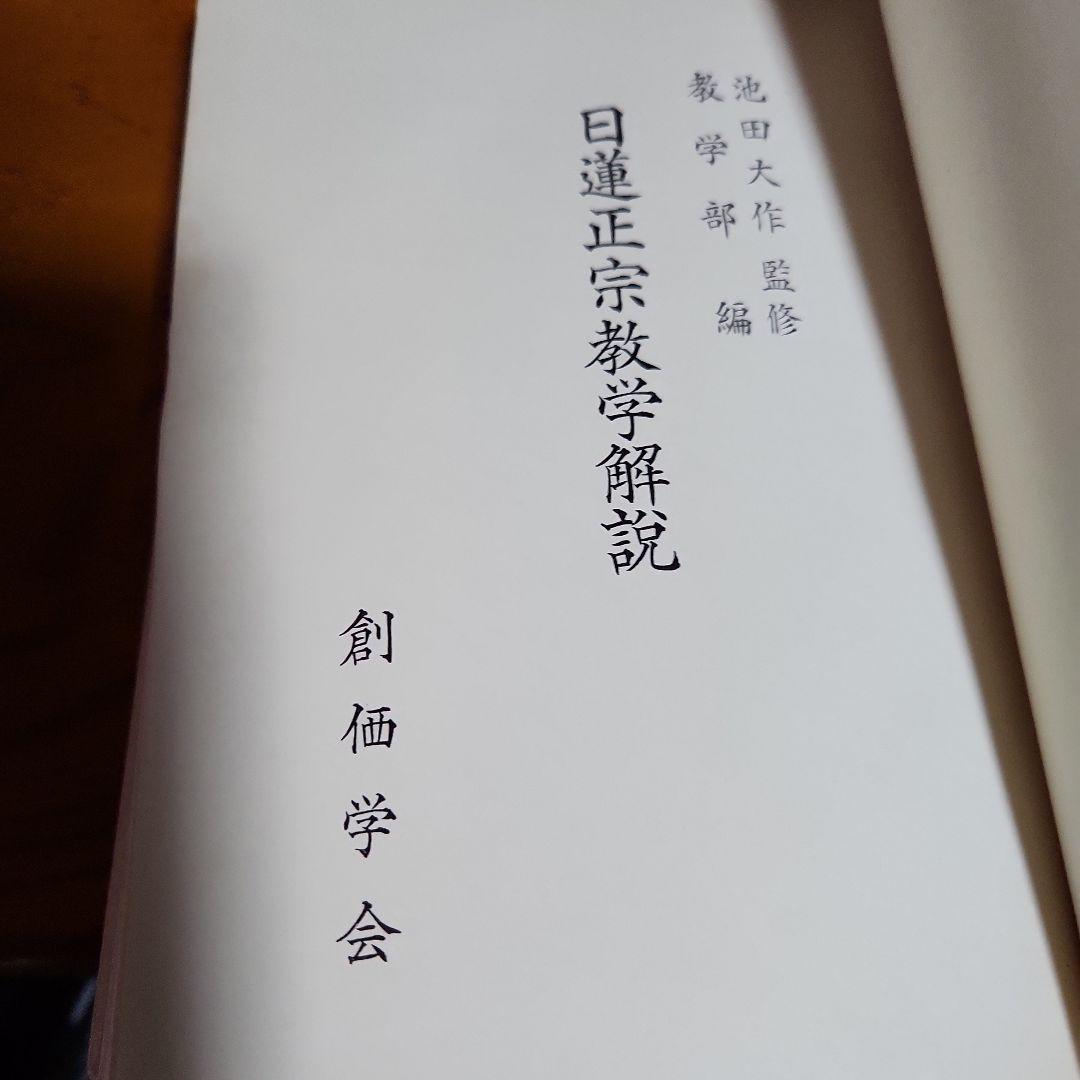 池田大作 監修
教学部 編
日蓮正宗教学解説
創価学会